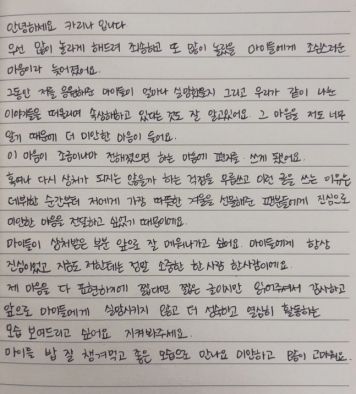 안녕하세요 카리나입니다
우선 많이 놀라게 해드려 죄송하고 또 많이 놀랐을 마이들에게 조심스러운
마음이라 늦어졌어요.
그동안 저를 응원해준 마이들이 얼마나 실망했을지 그리고 우리가 같이 나눈
이야기들을 떠올리며 속상해하고 있다는 것도 잘 알고있어요. 그 마음을 저도 너무
알기 때문에 더 미안한 마음이 들어요.
이 마음이 조금이나마 전해졌으면 하는 마음에 편지를 쓰게 됐어요.
혹여나 다시 상처가 되지는 않을까 하는 걱정을 무릅쓰고 이런 글을 쓰는 이유는
데뷔한 순간부터 저에게 가장 따뜻한 겨울을 선물해준 팬분들에게 진심으로
미안한 마음을 전달하고 싶었기 때문이에요.
마이들이 상처받은 부분 앞으로 잘 메워나가고 싶어요. 마이들에게 항상
진심이었고 지금도 저한테는 정말 소중한 한사람 한사람이에요.
제 마음을 다 표현하기에 짧다면 짧은 글이지만 읽어주셔서 감사하고
앞으로 마이들에게 실망시키지 않고 더 성숙하고 열심히 활동하는
모습 보여드리고 싶어요 지켜봐주세요.
마이들 밥 잘 챙겨먹고 좋은 모습으로 만나요 미안하고 많이 고마워요.